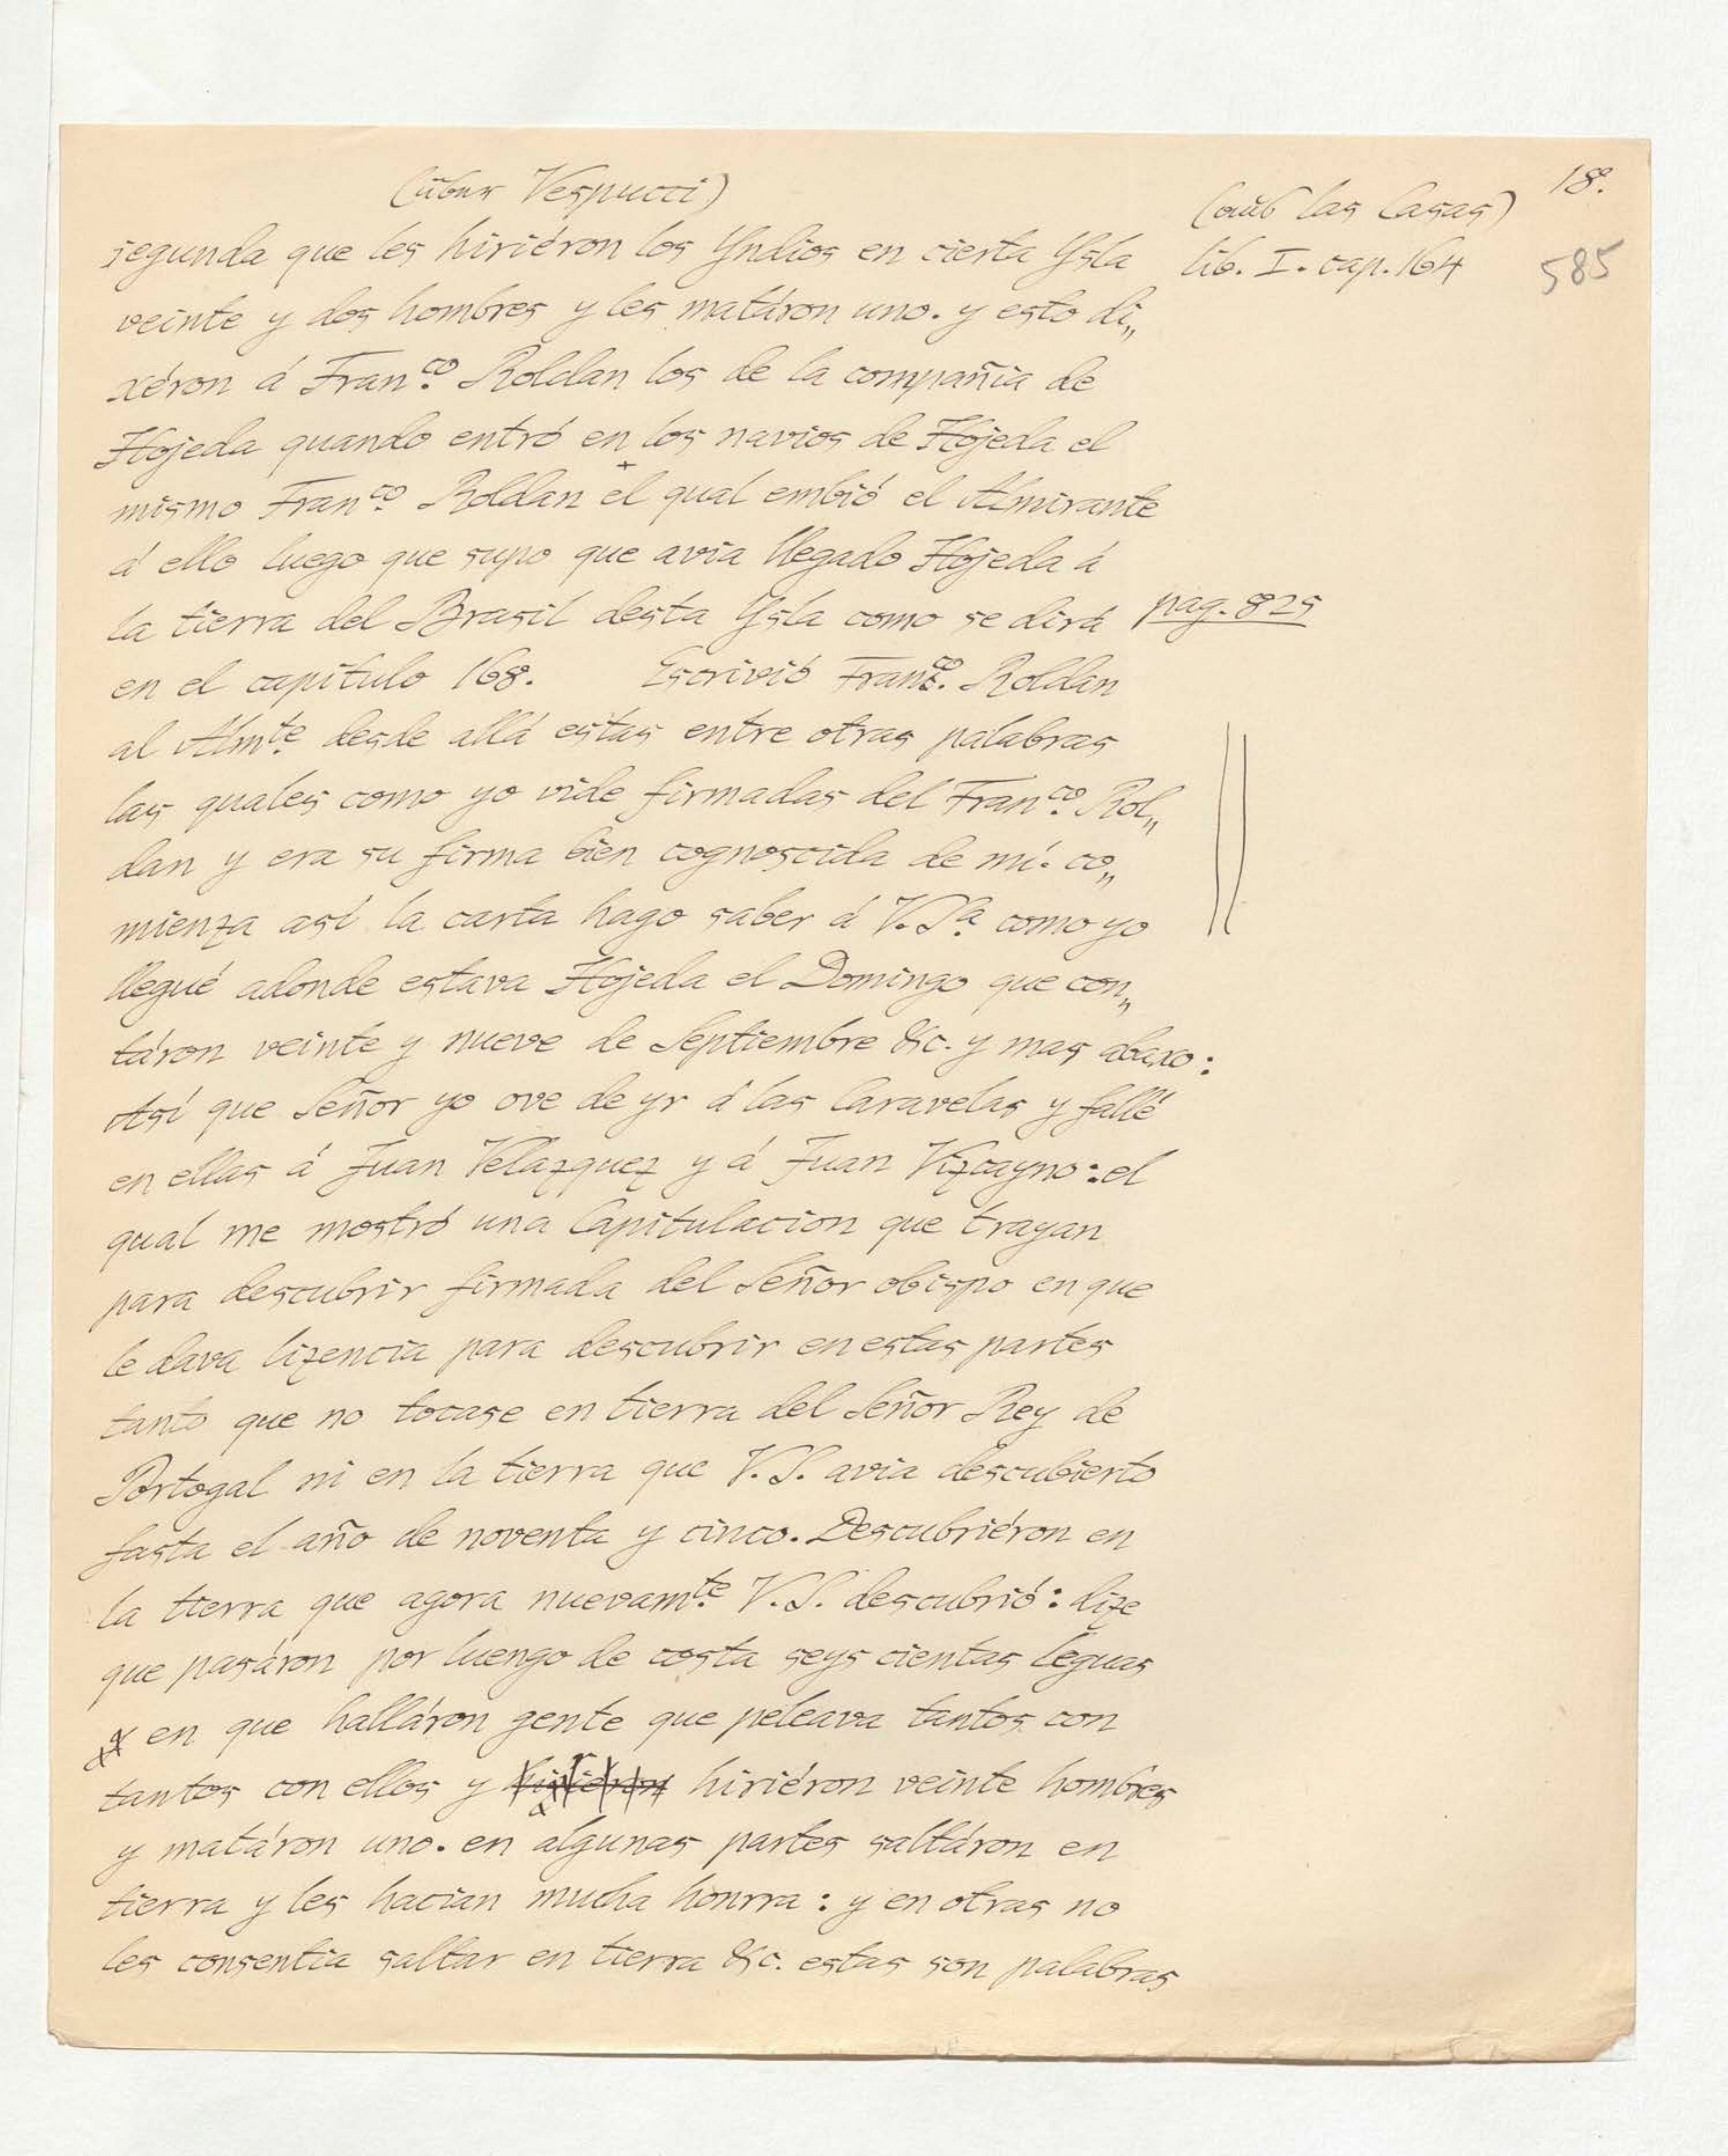 (über Vespucci)
(aus las Casas)
18.
segunda que les hiriéron los Yndios en cierta Ysla
lib. I. cap. 164
585
veinte y dos hombres y les matáron uno. y esto di„
xéron á Fran.co Roldan los de la compañia de
Hojeda quando entró en los navios de Hojeda el
mismo Fran.co Roldan el qual embió el Almirante
á ello luego que supo que avia llegado Hojeda á
la tierra del Brasil desta Ysla como se dirá
pag. 825
en el capítulo 168. Escrivió Fran.co Roldan
al Alm.te desde allá estas entre otras palabras
las quales como yo vide firmadas del Fran.co Rol„
dan y era su firma bien cognoscida de mí. co„
mienza así la carta hago saber á V.S.a como yo
llegué adonde estava Hojeda el Domingo que con„
táron veinte y nueve de Septiembre &c. y mas abaxo:
Así que Señor yo ove de yr á las Caravelas y fallé
en ellas á Juan Velazquez y á Juan Vizcayno: el
qual me mostró una Capitulacion que trayan
para descubrir firmada del Señor obispo en que
le dava lizencia para descubrir en estas partes
tanto que no tocase en tierra del Señor Rey de
Portogal ni en la tierra que V.S. avia descubierto
fasta el año de noventa y cinco. Descubriéron en
la tierra que agora nuevam.te V.S. descubrió: dize
que pasáron por luengo de costa seys cientas leguas
en que halláron gente que peleava tantos con
tantos con ellos y hiriéron veinte hombres
y matáron uno. en algunas partes saltáron en
tierra y les hacian mucha honrra: y en otras no
les consentia saltar en tierra &c. estas son palabras